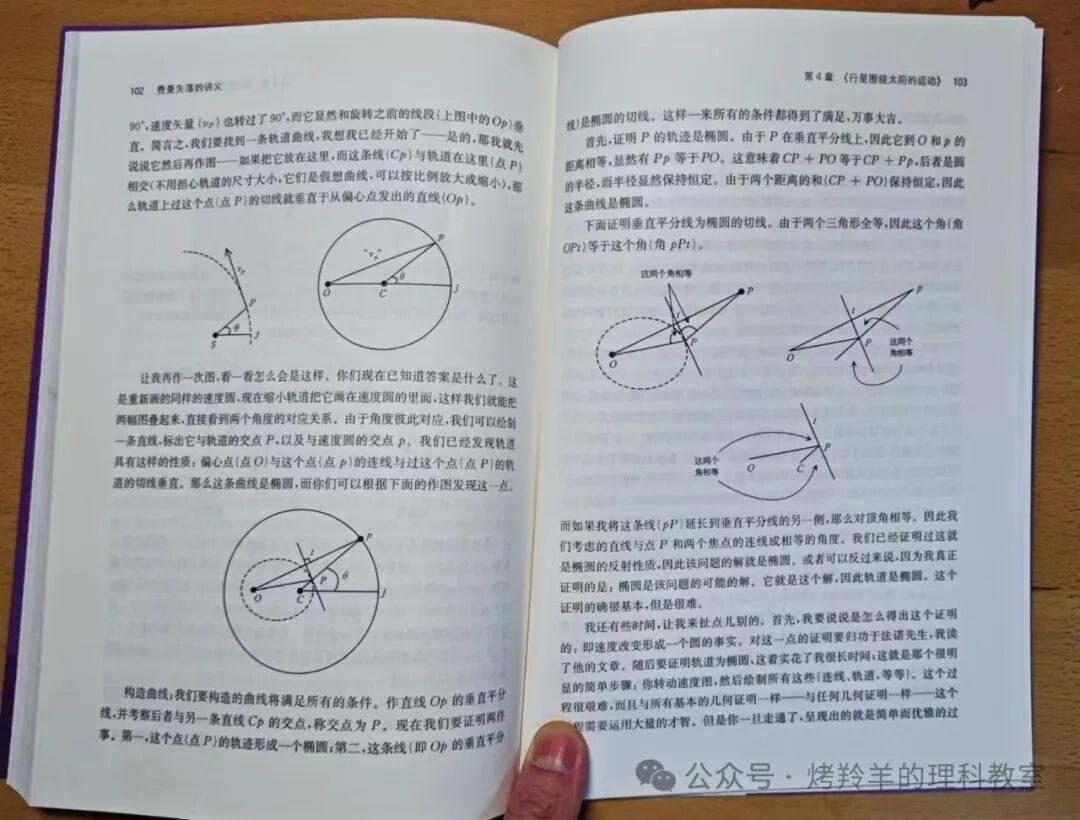 102 费曼失落的讲义
90°,速度矢量{vP}也转过了90°,而它显然和旋转之前的线段{上图中的Op}垂
直。简言之,我们要找到一条轨道曲线,我想我已经开始了——是的,那我就先
说说它然后再作图——如果把它放在这里,而这条线{Cp}与轨道在这里{点P}
相交(不用担心轨道的尺寸大小,它们是假想曲线,可以按比例放大或缩小),那
么轨道上过这个点{点P}的切线就垂直于从偏心点发出的直线{Op}。
vP
P
θ
S
J
"vP"
p
O
C
θ
J
让我再作一次图,看一看怎么会是这样。你们现在已知道答案是什么了。这
是重新画的同样的速度圆,现在缩小轨道把它画在速度圆的里面,这样我们就能把
两幅图叠起来,直接看到两个角度的对应关系。由于角度彼此对应,我们可以绘制
一条直线,标出它与轨道的交点P,以及与速度圆的交点p。我们已经发现轨道
具有这样的性质:偏心点{点O}与这个点{点p}的连线与过这个点{点P}的轨
道的切线垂直。那么这条曲线是椭圆,而你们可以根据下面的作图发现这一点。
p
t
P
θ
O
C
J
构造曲线;我们要构造的曲线将满足所有的条件。作直线Op的垂直平分
线,并考察后者与另一条直线Cp的交点,称交点为P。现在我们要证明两件
事。第一,这个点{点P}的轨迹形成一个椭圆;第二,这条线{即Op的垂直平分
第4章 《行星围绕太阳的运动》 103
线}是椭圆的切线。这样一来所有的条件都得到了满足,万事大吉。
首先,证明P的轨迹是椭圆。由于P在垂直平分线上,因此它到O和p的
距离相等,显然有Pp等于PO。这意味着CP+PO等于CP+Pp,后者是圆
的半径,而半径显然保持恒定。由于两个距离的和{CP+PO}保持恒定,因此
这条曲线是椭圆。
下面证明垂直平分线为椭圆的切线。由于两个三角形全等,因此这个角{角
OPt}等于这个角{角pPt}。
这两个角相等
p
t
P
O
p
t
P
O
这两个
角相等
t
P
O
C
这两个
角相等
而如果我将这条线{pP}延长到垂直平分线的另一侧,那么对顶角相等。因此我
们考虑的直线与点P和两个焦点的连线成相等的角度。我们已经证明过这就
是椭圆的反射性质,因此该问题的解就是椭圆。或者可以反过来说,因为我真正
证明的是:椭圆是该问题的可能的解。它就是这个解,因此轨道是椭圆。这个
证明的确很基本,但是很难。
我还有些时间,让我来扯点儿别的。首先,我要说说是怎么得出这个证明
的:即速度改变形成一个圆的事实。对这一点的证明要归功于法诺先生,我读
了他的文章。随后要证明轨道为椭圆,这着实花了我很长时间;这就是那个很明
显的简单步骤:你转动速度图,然后绘制所有这些{连线、轨道,等等}。这个过
程很艰难,而且与所有基本的几何证明一样——与任何几何证明一样——这个
程需要运用大量的才智。但是你一旦走通了,呈现出的就是简单而优雅的过
公众号·烤羚羊的理科教室